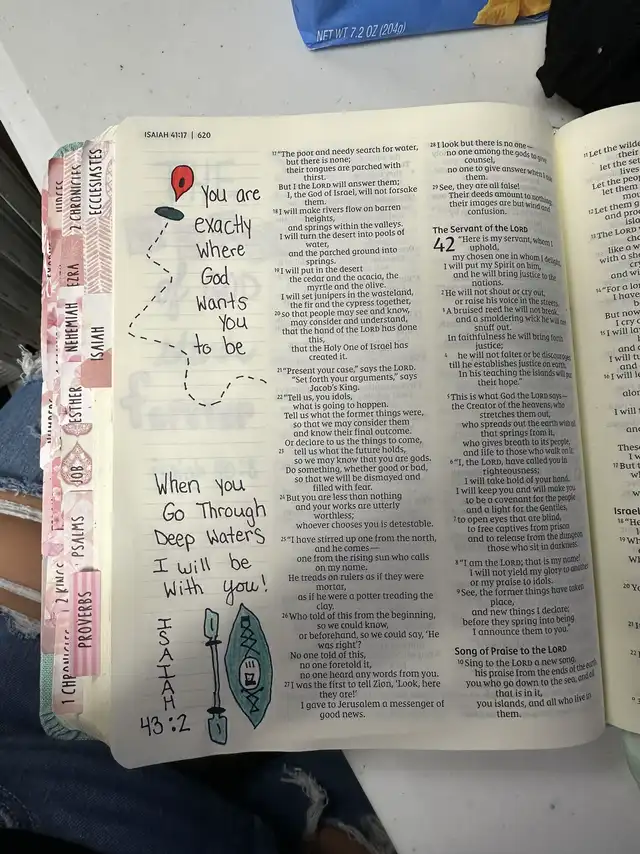 NET WT 7.2 OZ (204g)
ISAIAH 41:17 | 620
You are
exactly
where
God
wants
you
to be
When you
Go Through
Deep Waters
I will be
With you!
ISAIAH
43:2
JUDGES
2 CHRONICLES
ECCLESIASTES
EZRA
NEHEMIAH
ISAIAH
ESTHER
JOB
PSALMS
2 KINGS
PROVERBS
1 CHRONICLES
17 "The poor and needy search for water,
but there is none;
their tongues are parched with
thirst.
But I the LORD will answer them;
I, the God of Israel, will not forsake
them.
18 I will make rivers flow on barren
heights,
and springs within the valleys.
I will turn the desert into pools of
water,
and the parched ground into
springs.
19 I will put in the desert
the cedar and the acacia, the
myrtle and the olive.
I will set junipers in the wasteland,
the fir and the cypress together,
20 so that people may see and know,
may consider and understand,
that the hand of the LORD has done
this,
that the Holy One of Israel has
created it.
21 "Present your case," says the LORD.
"Set forth your arguments," says
Jacob's King.
22 "Tell us, you idols,
what is going to happen.
Tell us what the former things were,
so that we may consider them
and know their final outcome.
Or declare to us the things to come,
23 tell us what the future holds,
so we may know that you are gods.
Do something, whether good or bad,
so that we will be dismayed and
filled with fear.
24 But you are less than nothing
and your works are utterly
worthless;
whoever chooses you is detestable.
25 "I have stirred up one from the north,
and he comes—
one from the rising sun who calls
on my name.
He treads on rulers as if they were
mortar,
as if he were a potter treading the
clay.
26 Who told of this from the beginning,
so we could know,
or beforehand, so we could say, 'He
was right'?
No one told of this,
no one foretold it,
no one heard any words from you.
27 I was the first to tell Zion, 'Look, here
they are!'
I gave to Jerusalem a messenger of
good news.
28 I look but there is no one—
no one among the gods to give
counsel,
no one to give answer when I ask
them.
29 See, they are all false!
Their deeds amount to nothing;
their images are but wind and
confusion.
The Servant of the LORD
42 "Here is my servant, whom I
uphold,
my chosen one in whom I delight;
I will put my Spirit on him,
and he will bring justice to the
nations.
2 He will not shout or cry out,
or raise his voice in the streets.
3 A bruised reed he will not break,
and a smoldering wick he will not
snuff out.
In faithfulness he will bring forth
justice;
4 he will not falter or be discouraged
till he establishes justice on earth.
In his teaching the islands will put
their hope."
5 This is what God the LORD says—
the Creator of the heavens, who
stretches them out,
who spreads out the earth with all
that springs from it,
who gives breath to its people,
and life to those who walk on it:
6 "I, the LORD, have called you in
righteousness;
I will take hold of your hand.
I will keep you and will make you
to be a covenant for the people
and a light for the Gentiles,
7 to open eyes that are blind,
to free captives from prison
and to release from the dungeon
those who sit in darkness.
8 "I am the LORD; that is my name!
I will not yield my glory to another
or my praise to idols.
9 See, the former things have taken
place,
and new things I declare;
before they spring into being
I announce them to you."
Song of Praise to the LORD
10 Sing to the LORD a new song,
his praise from the ends of the earth,
you who go down to the sea, and all
that is in it,
you islands, and all who live in
them.